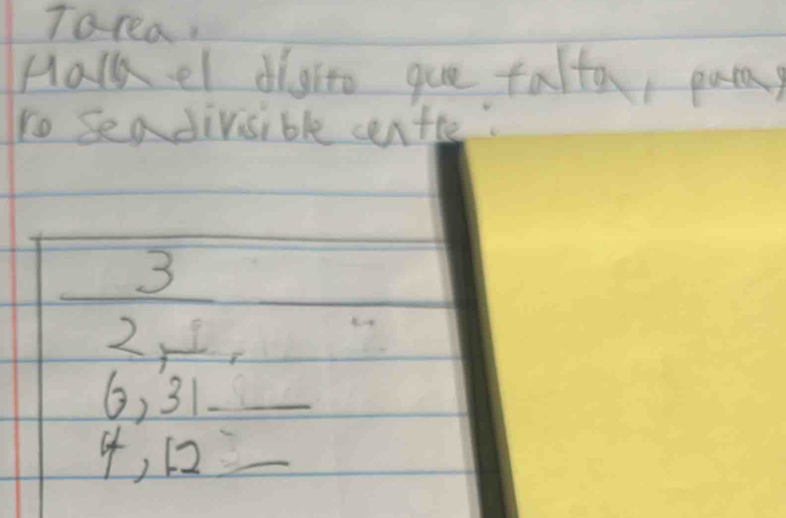 Tarea.
Halla el dígito que falta, para
ro sea divisible centre:
3
2,
6,31__
4,12__